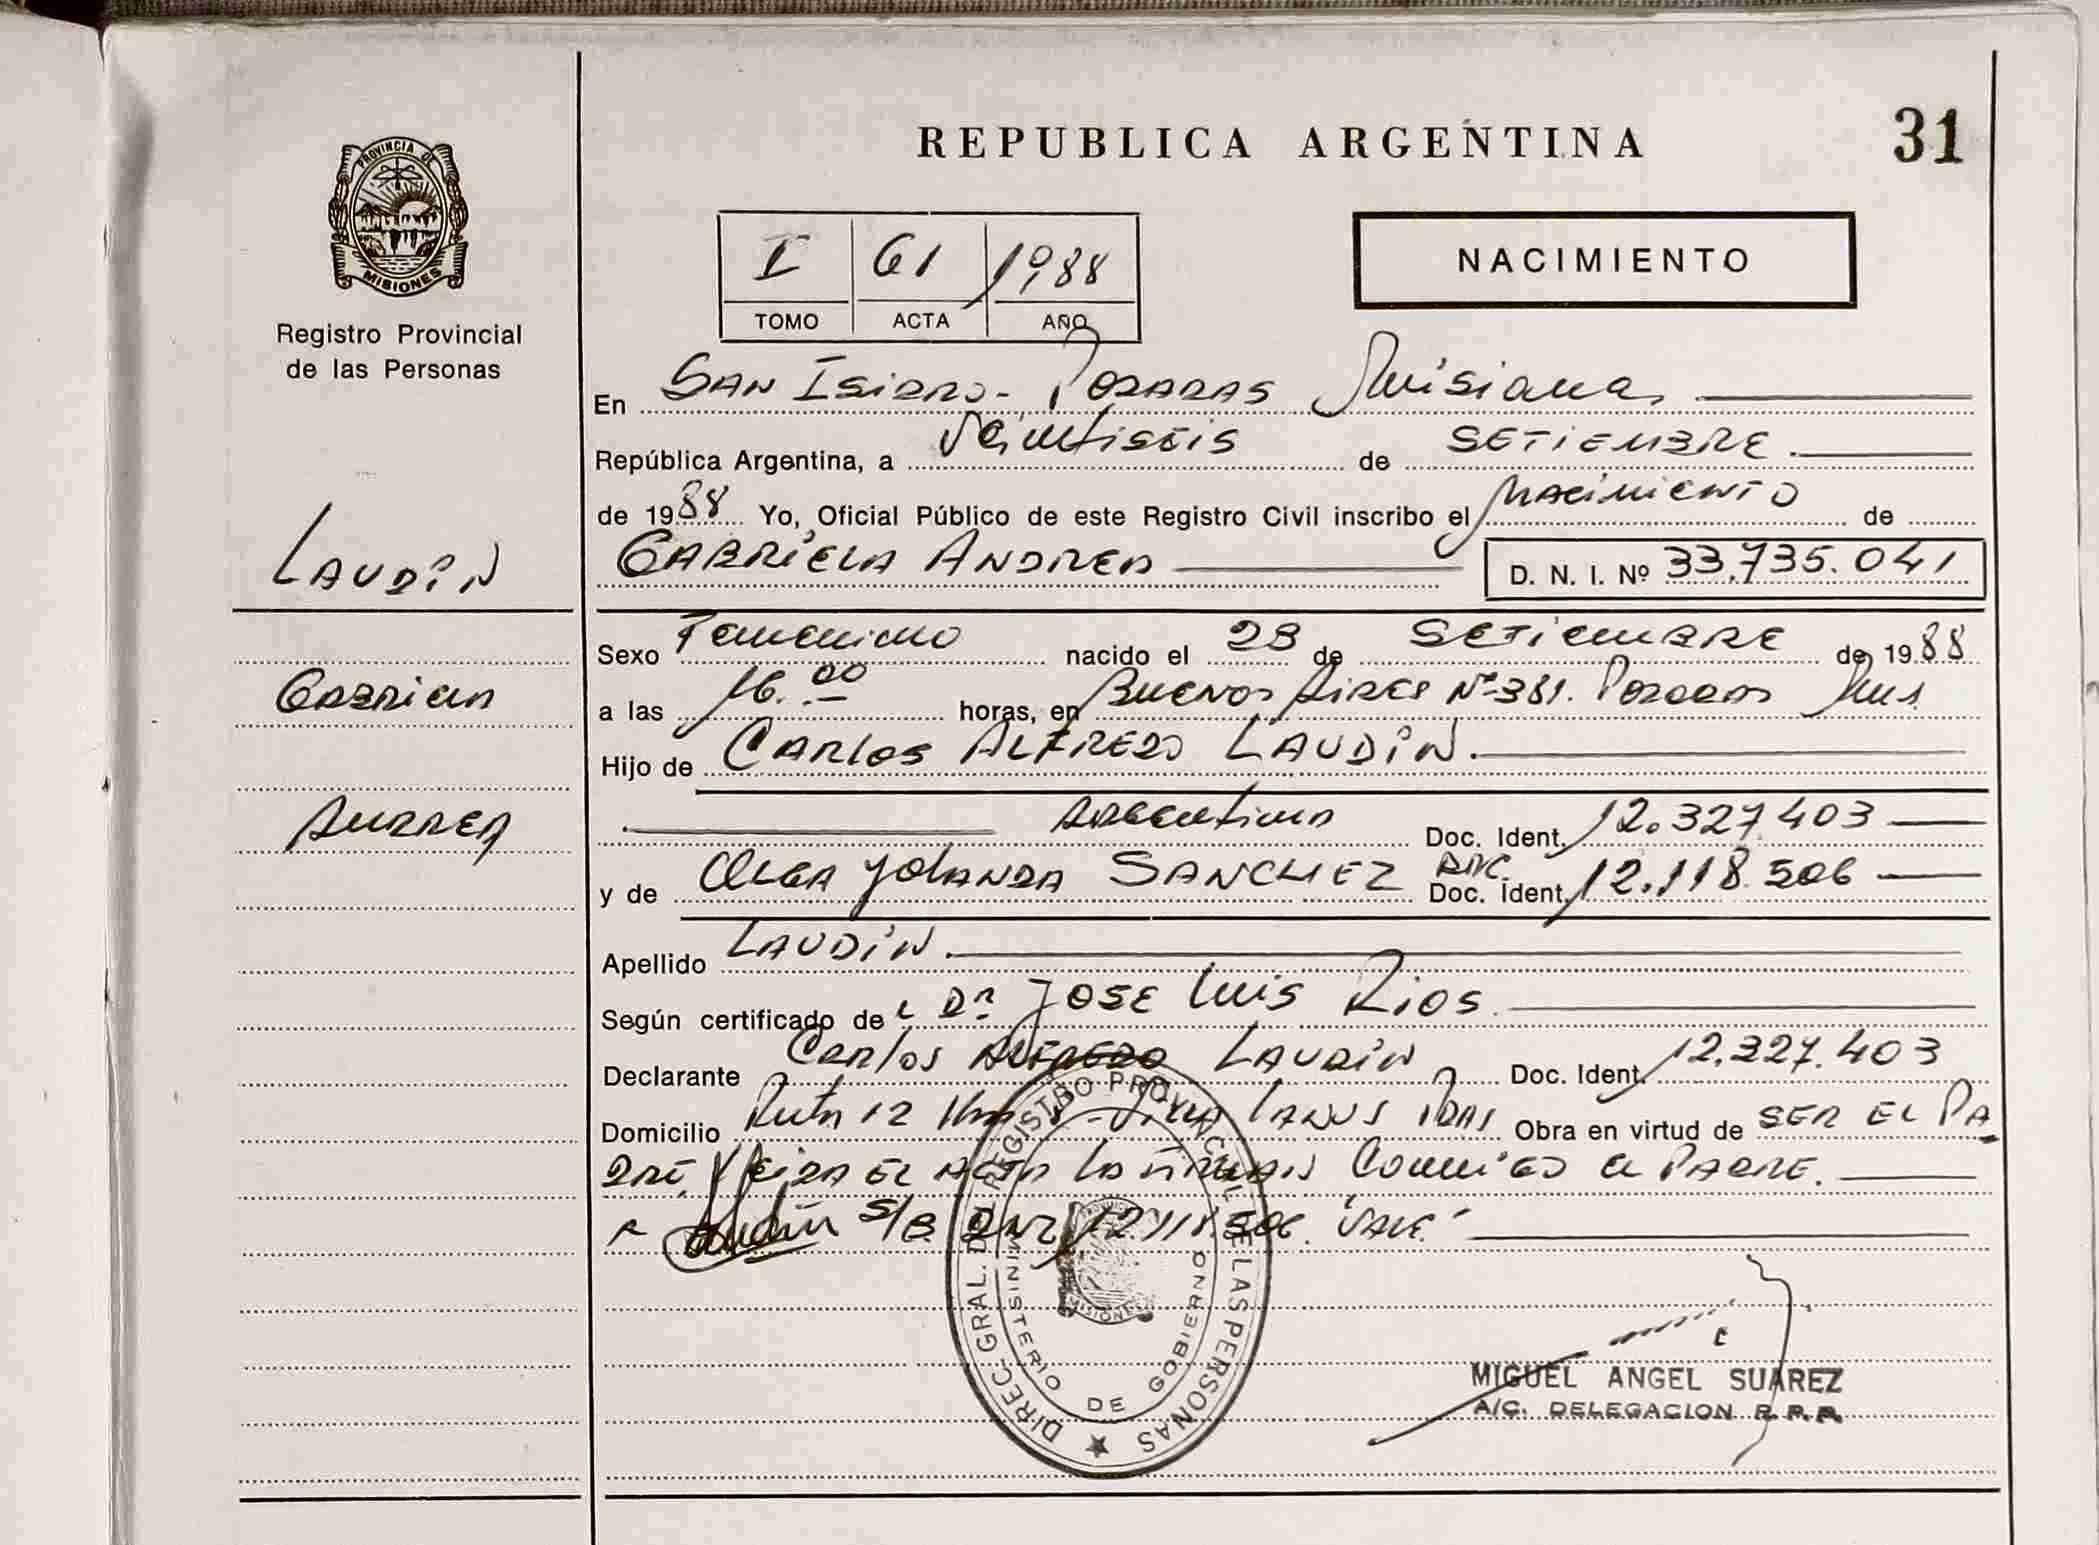 PROVINCIA DE
MISIONES
Registro Provincial
de las Personas
LAUDIN
GABRIELA
ANDREA
REPUBLICA ARGENTINA
31
I 61 1988
TOMO ACTA AÑO
NACIMIENTO
En SAN ISIDRO - POSADAS Misiones
República Argentina, a Veintiseis de SETIEMBRE
de 1988 Yo, Oficial Público de este Registro Civil inscribo el Nacimiento de
GABRIELA ANDREA D. N. I. Nº 33.735.041
Sexo Femenino nacido el 23 de SETIEMBRE de 1988
a las 16.00 horas, en BUENOS AIRES Nº 381. Posadas Mns.
Hijo de CARLOS ALFREDO LAUDIN.
Argentino Doc. Ident. 12.327.403
y de OLGA YOLANDA SANCHEZ Doc. Ident. 12.118.506
Apellido LAUDIN.
Según certificado de L DR JOSE LUIS RIOS.
Declarante CARLOS ALFREDO LAUDIN Doc. Ident. 12.327.403
Domicilio Ruta 12 Km LANUS PDAS Obra en virtud de SER EL PA-
DRE. EL ACTA LA FIRMAN CONMIGO EL PADRE.
Laudin S/B 12.118.506. "VALE"
DIREC. GRAL. DEL REGISTRO PROVINCIAL DE LAS PERSONAS
MINISTERIO DE GOBIERNO
MISIONES
MIGUEL ANGEL SUAREZ
A/C. DELEGACION R. P. P.